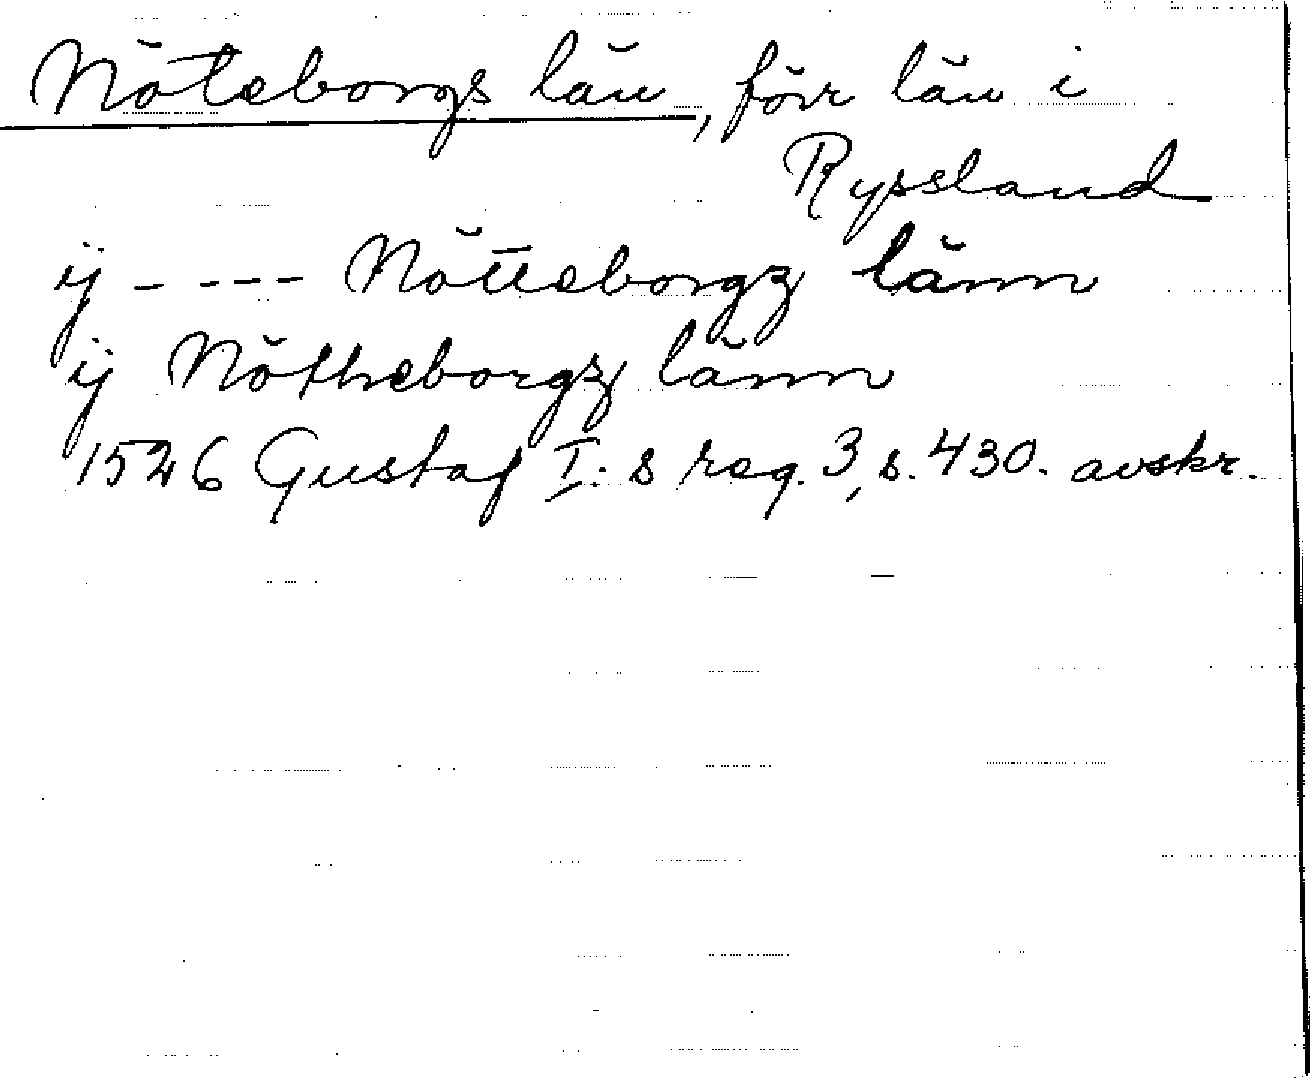 Nöteborgs län, förr län i
Ryssland
ij - - - - Nötteborgz länn
ij Nötheborgz länn
1526 Gustaf I:s reg. 3, s. 430. avskr.